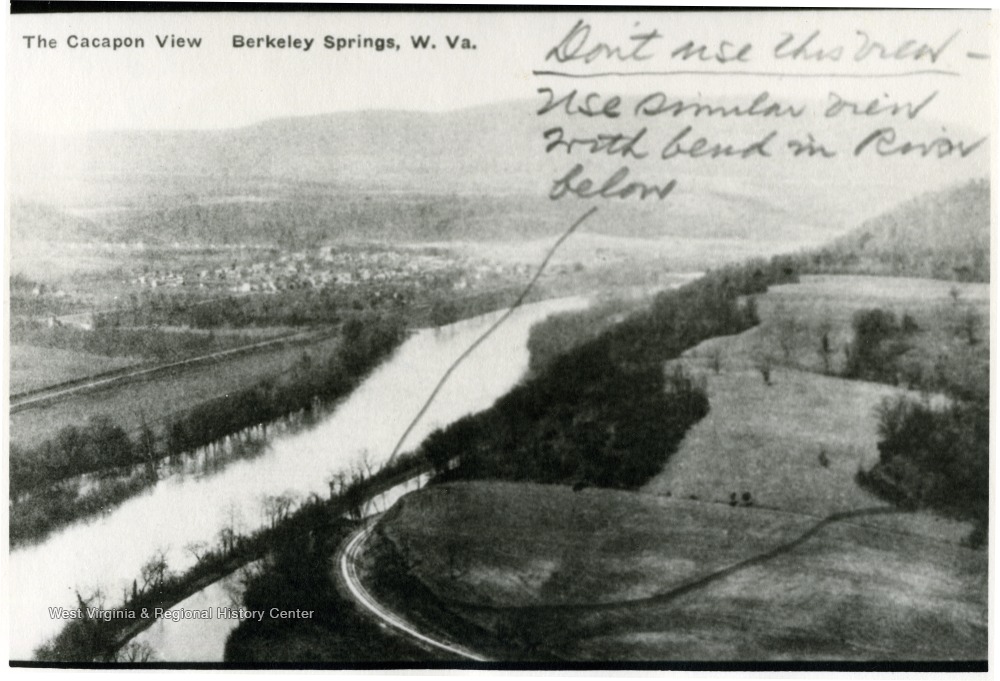 The Cacapon View Berkeley Springs, W. Va.
Don't use this view -
Use similar view
with bend in River
below
West Virginia & Regional History Center